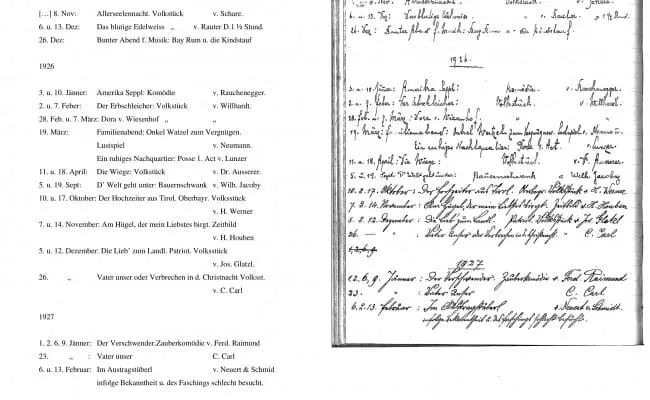 […] 8. Nov: Allerseelenmacht. Volkstück v. Schare.
6. u. 13. Dez: Das blutige Edelweiss „ v. Rauter D.1 ½ Stund.
26. Dez: Bunter Abend f. Musik: Bay Rum u. die Kindstauf
1926
3. u. 10. Jänner: Amerika Seppl: Komödie v. Rauchenegger.
2. u. 7. Feber: Der Erbschleicher: Volkstück v. Willhardt.
28. Feb. u. 7. März: Dora v. Wiesenhof „ „
19. März: Familienabend: Onkel Watzel zum Vergnügen.
Lustspiel v. Neumann.
Ein ruhiges Nachquartier: Posse 1. Act v. Lunzer
11. u. 18. April: Die Wiege: Volkstück v. Dr. Ausserer.
5. u. 19. Sept: D' Welt geht unter: Bauernschwank v. Wilh. Jacoby
10. u. 17. Oktober: Der Hochzeiter aus Tirol. Oberbayr. Volksstück
v. H. Werner
7. u. 14. November: Am Hügel, der mein Liebstes birgt. Zeitbild
v. H. Houben
5. u. 12. Dezember: Die Lieb' zum Landl. Patriot. Volksstück
v. Jos. Glatzl.
26. „ Vater unser oder Verbrechen in d. Christnacht Volksst.
v. C. Carl
1927
1. 2. 6. 9. Jänner: Der Verschwender.Zauberkomödie v. Ferd. Raimund
23. „ : Vater unser C. Carl
6. u. 13. Februar: Im Austragstüberl v. Neuert & Schmid
infolge Bekanntheit u. des Faschings schlecht besucht.
1926.
3. u. 10. Jänner: Amerika Seppl: Komödie v. Rauchenegger.
2. u. 7. Feber: Der Erbschleicher: Volkstück v. Willhardt.
28. Feb. u. 7. März: Dora v. Wiesenhof. „ „
11. u. 18. April: Die Wiege: Volkstück v. Dr. Ausserer.
5. u. 19. Sept: D' Welt geht unter: Bauernschwank v. Wilh. Jacoby
10. u. 17. Oktober: Der Hochzeiter aus Tirol. Volksstück v. H. Werner
7. u. 14. November: Am Hügel, der mein Liebstes birgt. Zeitbild v. H. Houben
5. u. 12. Dezember: Die Lieb' zum Landl. Patriot. Volksstück v. Jos. Glatzl
26. — „ Vater unser C. Carl
1927
1. 2. 6. 9. Jänner: Der Verschwender. Zauberkomödie v. Ferd. Raimund
23. „ : Vater unser C. Carl
6. u. 13. Februar: Im Austragstüberl v. Neuert u. Schmidt.
infolge Bekanntheit u. des Faschings schlecht besucht.